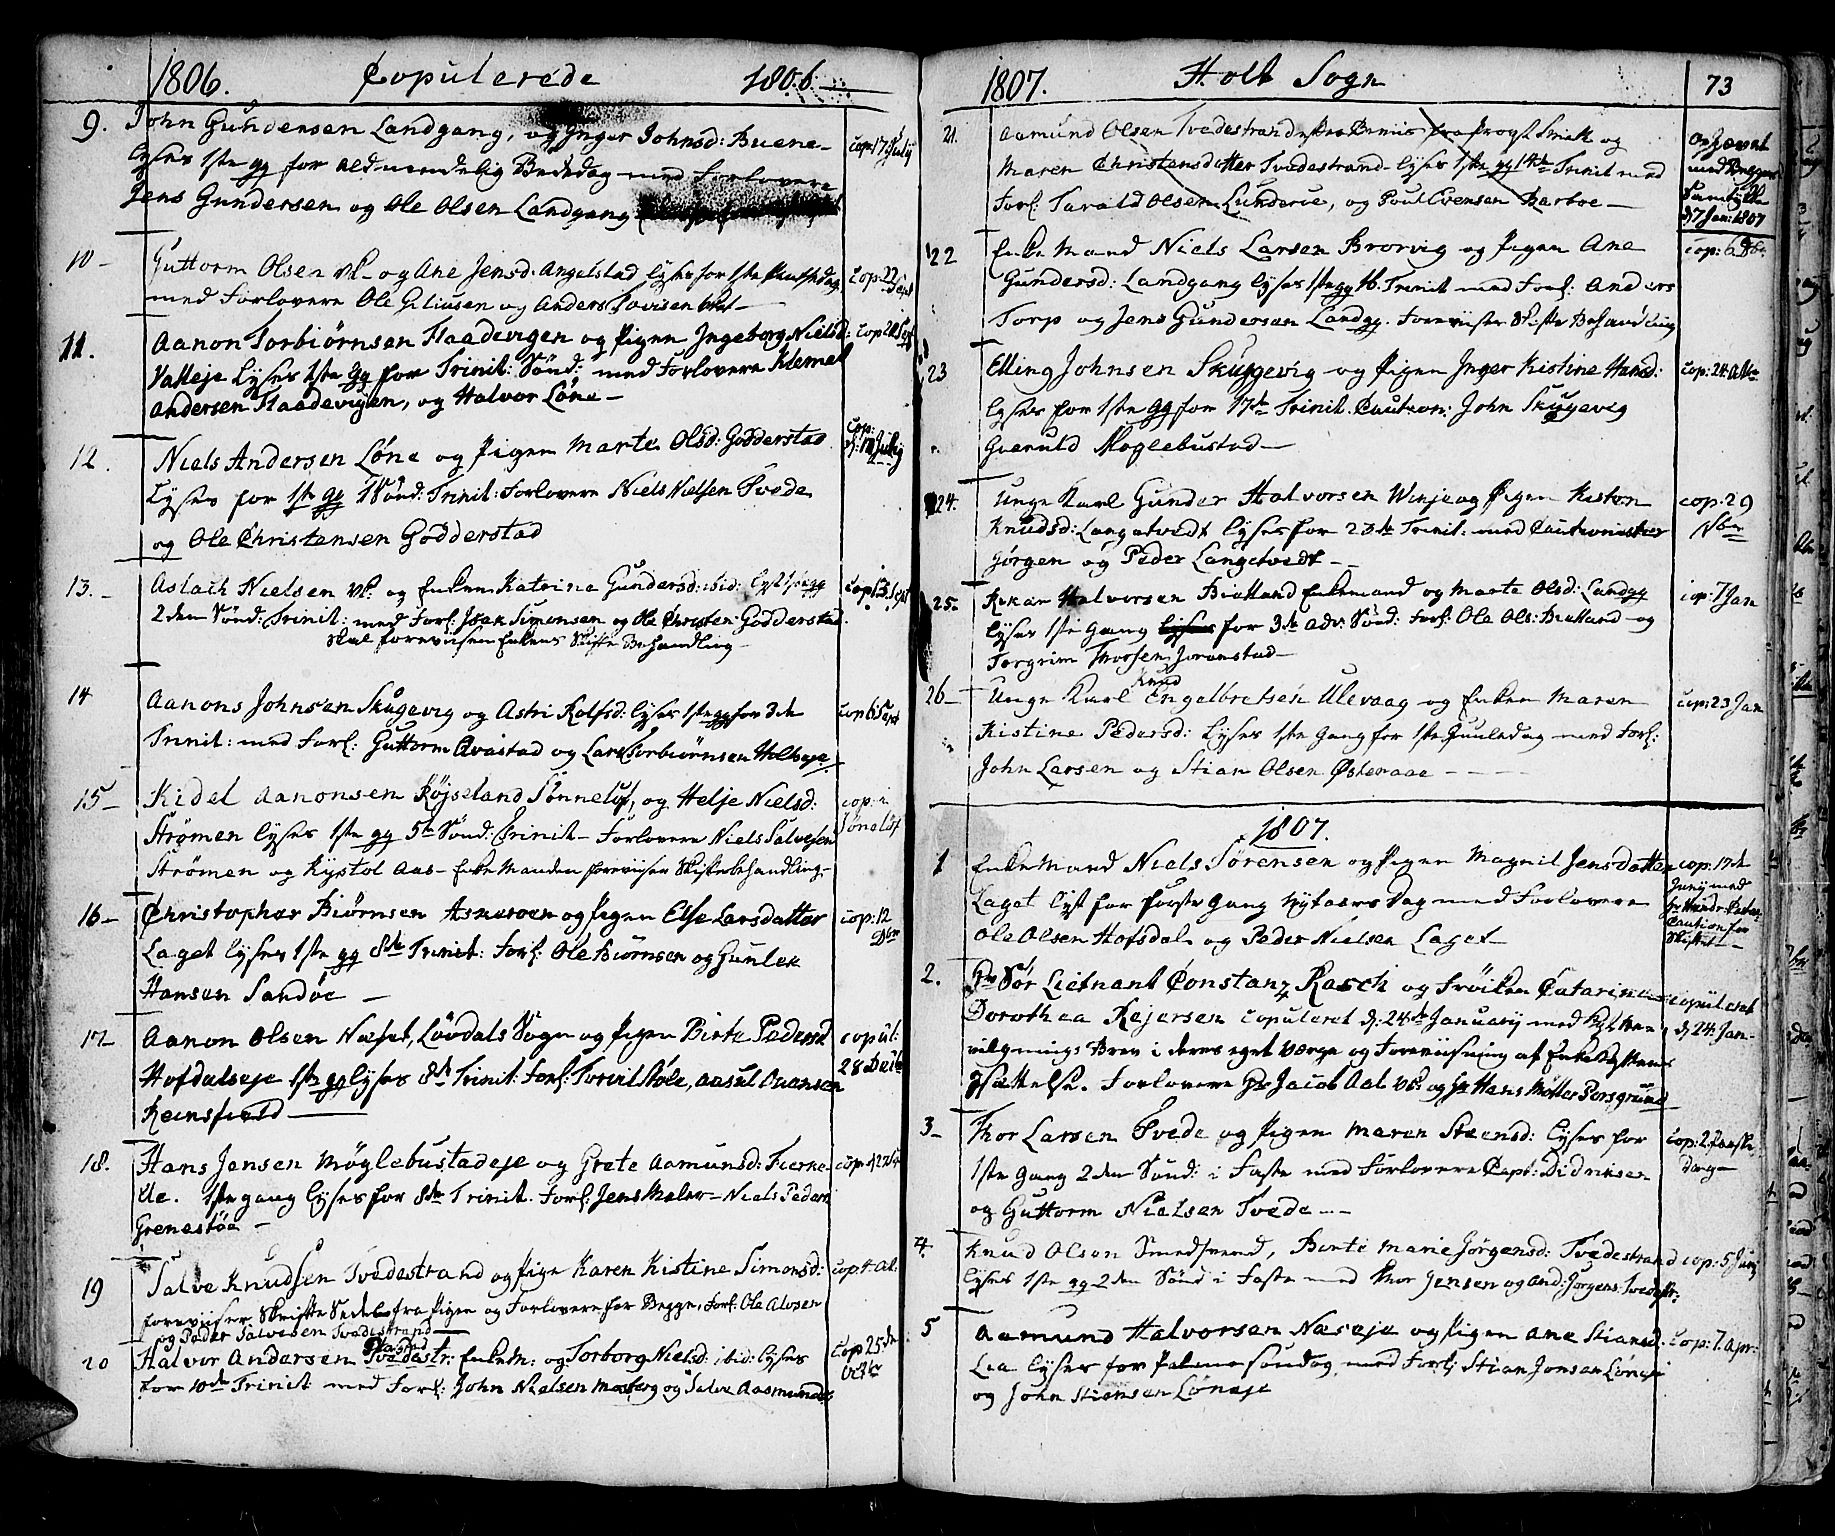 1806. Copulerede 1806.
9. John Gundersen Landgang, og Inger Johnsd: Buene-
lyses 1ste gg for Aldmindelig Bededag med Forlovere
Jens Gundersen og Ole Olsen Landgang
cop: 17 July
10 - Guttorm Olsen og Ane Jensd: Angelstad lyses for 1ste Pintsedag
med Forlovere Ole Giliusen og Anders Tovisen
cop: 22 Sept
11. Aanon Torbiørnsen Staadevigen og Pigen Ingeborg Nielsd:
Valleje lyses 1ste gg for Trinit: Sønd: med Forlovere Klemet
Andersen Staadevigen, og Halvor Løne -
cop 20 Sept
12. Niels Andersen Løne og Pigen Marte Olsd: Godderstad
Lyses for 1ste gg 1 Sønd: Trinit: Forlovere Niels Nielsen Tvede
og Ole Christensen Godderstad
cop: d: July
13. - Aslach Nielsen og Enken Katrine Gundersd: ibid: lyst 1ste gg
2den Sønd: Trinit: med Forl: Isak Simonsen og Ole Christen: Godderstad
skal foreviisen Enkens Skifte Behandling -
cop 13 Sept
14 Aanons Johnsen Skugevig og Astri Rolfsd: lyses 1ste gg for 3die
Trinit: med Forl: Guttorm Qvastad og Lars Torbiørnsen
cop 6 Sept
15 - Kidel Aanonsen Røjseland Sønneløf, og Helje Nielsd:
Strømen lyses 1ste gg 5te Sønd: Trinit - Forlovere Niels Salvesen
Strømen og Kystol Aas - Enke Manden foreviiser Skiftebehandling -
cop: i Søneløf
16 - Christopher Biørnsen Askeroen og Pigen Else Larsdatter
Laget lyses 1ste gg 8de Trinit: Forl: Ole Biørnsen og Gunlek
Hansen Sandøe -
cop: 12 Dbr
17 Aanon Olsen Næset, Løvdals Sogn og Pigen Birte Pedersd
Hofdalseje 1ste gg lyses 8de Trinit: Forl: Torvil Støle, Aasul Ouansen
Reinsfield
copul: 28 Decbr
18. Hans Jensen Møglebustadeje og Grete Aamunsd: Fierke-
Ue. 1ste gang lyses for 8de Trinit. Forl: Jens Maler - Niels Peders
Grenestøe -
19 Salve Knudsen Tvedestrand og Pige Karen Kistine Simonsd:
foreviiser Skrifte Sedel fra Pigen og Forlovere for Begge. Forl: Ole Alvsen
og Peder Salvesen Tvedestrand
20 Halvor Andersen Tvedestr: Enkem: og Torborg Nielsd: ibid: lyses
for 10de Trinit med Forl: John Nielsen Mosberg og Salve Aasmunds
cop 25de Octbr
1807. Holt Sogn 73
21. Aamund Olsen Tvedestrand og
Maren Christensdatter Tvedestrand lyses 1ste gg 14de Trinit med
Forl: Tarald Olsen Lunderøe, og Poul Evensen Barboe -
Ophævet med Begges Samtykke d 7 Jan: 1807
22 Enke Mand Niels Larsen Brorvig og Pigen Ane
Gundersd: Landgang lyses 1ste gg Trinit med Forl: Anders
Torp og Jens Gundersen Landgg. Foreviiste Skifte Behandling
cop: 6
23 Elling Johnsen Skuggevig og Pigen Inger Kistine Hansd:
lyses for 1ste gg for 17de Trinit. Caution: John Skugevig
Gueruld Moglebustad -
cop: 24
24. Unge Karl Gunder Halvorsen Winje og Pigen Kisten
Knudsd: Langetvedt lyses for 23de Trinit: med Cautionister
Jørgen og Peder Langetvedt -
cop: 29 Nbr
25 - Halvorsen Enkemand og Marte Olsd: Landgg
lyses 1ste Gang for 3de Adv: Sønd: Forl: Ole Ols: og
Torgrim Thorsen Joranstad -
cop: 7 Jan
26 - Unge Karl Knud Engelbretsen Ulevaag og Enken Maren
Kistine Pedersd: Lyses 1ste Gang for 1ste Juuledag med Forl:
John Larsen og Stian Olsen Østeraae - - -
cop: 23 Jan
1807.
1 Enke Mand Niels Sørensen og Pigen Magnil Jensdatter
Laget lyst for første Gang Nytaars Dag med Forlovere
Ole Olsen Hofsdal og Peder Nielsen Laget
cop: 17de Juny med Caution for Skiftet -
2. Hr Sør Lietnant Constanz Rasch og Frøiken Catarina
Dorothea Rejersen copuleret d: 24de January med
vilgnings Brev i deres eget Værge og Foreviisning af Enke
sættelse. Forlovere Hr Jacob Aal og Hr Hans Møller Porsgrund
copuleret d: 24 Jan -
3 - Thor Larsen Tvede og Pigen Maren Steensd: lyses for
1ste Gang 2den Sønd: i Faste med Forlovere Capt: Didriksen
og Guttorm Nielsen Tvede - -
cop: 2 Paaske dag -
4 Knud Olsen Smedsvend, Birte Marie Jørgensd: Tvedestrand
lyses 1ste gg 2den Sønd i Faste med Thor Jensen og And: Jørgens: Tvedestr:
cop: 5 Juny
5 Aamund Halvorsen Næseje og Pigen Ane Stiansd:
Lia lyses for Palmesøndag med Forl: Stian Jonsen Løneje
og John Stiansen Løneje
cop: 7. Apr: